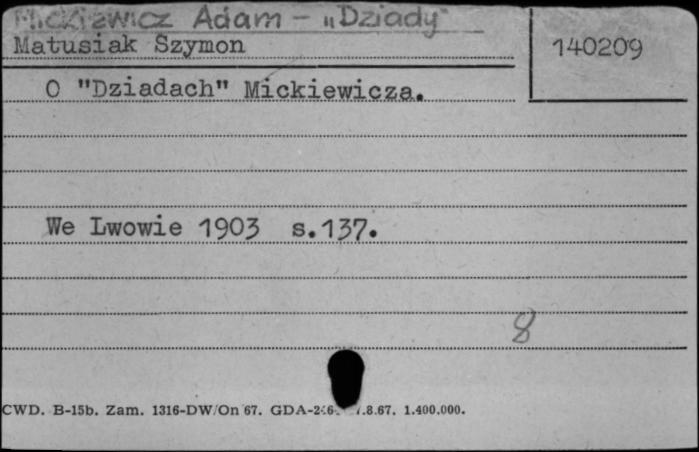 Mickiewicz Adam - „Dziady"
Matusiak Szymon
140209
O "Dziadach" Mickiewicza.
We Lwowie 1903 s.137.
8
CWD. B-15b. Zam. 1316-DW/On 67. GDA- .8.67. 1.400.000.